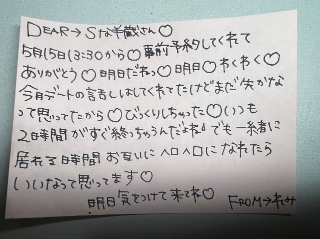 DEAR→Sな半蔵さん♡
5月15日13:30から♡事前予約してくれて
ありがとう♡明日だねっ♡明日♡わくわく♡
今月デートの言舌はしてくれてたけどまだ先かな
って思ってたから♡びっくりしちゃった♡いつも
2時間がすぐ終っちゃうんだよね。でも一緒に
居れる時間お互いにヘロヘロになれたら
いいなって思ってます♡
明日気をつけて来てね♡ FROM→れみ